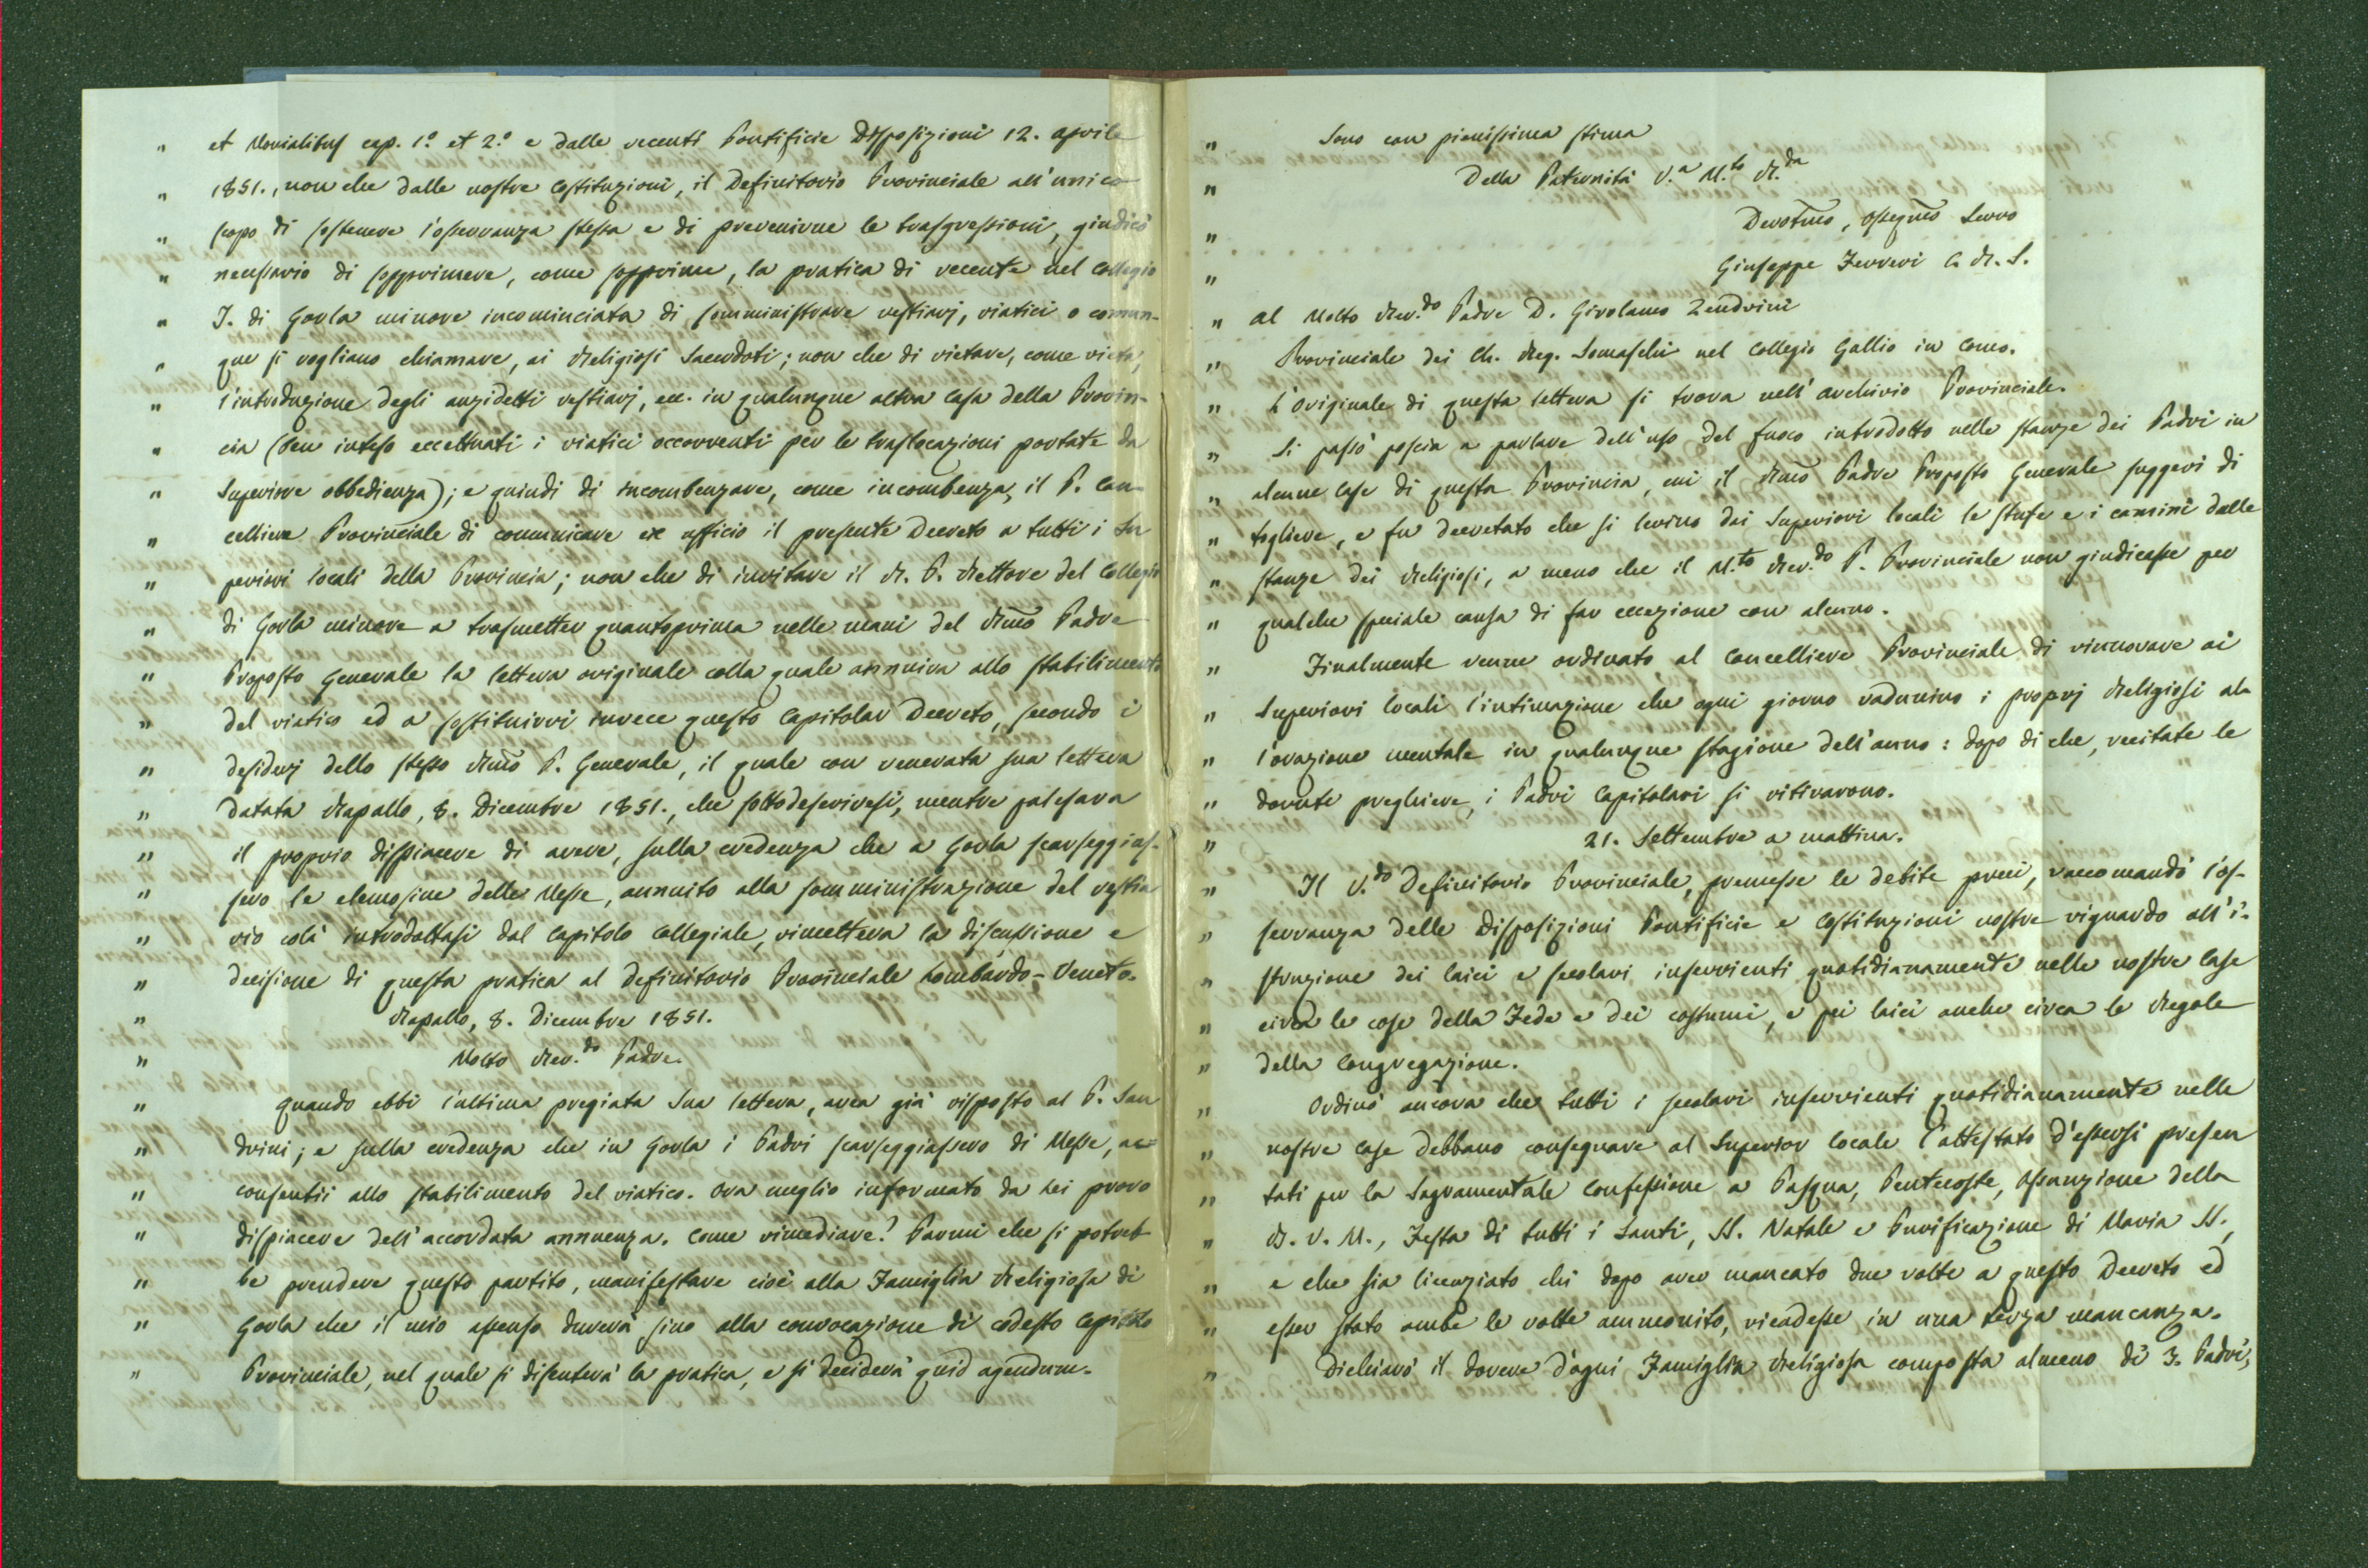 " et Monialibus cap. 1.° et 2.° e dalle recenti Pontificie Disposizioni 12. aprile
" 1851., non che dalle nostre Costituzioni, il Definitorio Provinciale all'unico
" scopo di sostenere l'osservanza stessa e di prevenirne le trasgressioni, giudicò
" necessario di sopprimere, come sopprime, la pratica di recente nel Collegio
" I. di Gorla minore incominciata di somministrare vestiarj, viatici o comun-
" que si vogliano chiamare, ai Religiosi Sacerdoti; non che di vietare, come vieta,
" l'introduzione degli anzidetti vestiarj, ecc. in qualunque altra Casa della Provin-
" cia (ben inteso eccettuati i viatici occorrenti per le traslocazioni portate da
" Superiore obbedienza); e quindi di incombenzare, come incombenza, il P. Can-
" celliere Provinciale di comunicare ex officio il presente Decreto a tutti i Su
" periori locali della Provincia; non che di invitare il R. P. Rettore del Collegio
" di Gorla minore a trasmetter quantoprima nelle mani del Rm̃o Padre
" Proposto Generale la lettera originale colla quale annuiva allo stabilimento
" del viatico ed a sostituirvi invece questo Capitolar Decreto, secondo i
" desiderj dello stesso Rm̃o P. Generale, il quale con venerata sua lettera
" datata Rapallo, 8. Dicembre 1851., che sottodescrivesi, mentre palesava
" il proprio dispiacere di avere, sulla credenza che a Gorla scarseggias-
" sero le elemosine delle Messe, annuito alla somministrazione del vestia
" rio colà introdottasi dal Capitolo Collegiale, rimetteva la discussione e
" decisione di questa pratica al Definitorio Provinciale Lombardo-Veneto.
" Rapallo, 8. Dicembre 1851.
" Molto Rev.do Padre.
" Quando ebbi l'ultima pregiata Sua lettera, avea già risposto al P. San
" drini; e sulla credenza che in Gorla i Padri scarseggiassero di Messe, ac-
" consentii allo stabilimento del viatico. Ora meglio informato da Lei provo
" dispiacere dell'accordata annuenza. Come rimediare? Parmi che si potreb
" be prendere questo partito, manifestare cioè alla Famiglia Religiosa di
" Gorla che il mio assenso durerà sino alla convocazione di codesto Capitolo
" Provinciale, nel quale si discuterà la pratica, e si deciderà quid agendum.
" Sono con pienissima stima
" Della Paternità V.a M.to R.da
" Devotm̃o, osseqm̃o Servo
" Giuseppe Ferreri C. R. S.
" al Molto Rev.do Padre D. Girolamo Zendrini
" Provinciale dei Ch. Reg. Somaschi nel Collegio Gallio in Como.
" L'Originale di questa lettera si trova nell'archivio Provinciale.
" Si passò poscia a parlare dell'uso del fuoco introdotto nelle stanze dei Padri in
" alcune Case di questa Provincia, cui il Rm̃o Padre Proposto Generale suggerì di
" togliere, e fu decretato che si levino dai Superiori locali le stufe e i camini dalle
" stanze dei Religiosi, a meno che il M.to Rev.do P. Provinciale non giudicasse per
" qualche speciale causa di far eccezione con alcuno.
" Finalmente venne ordinato al Cancelliere Provinciale di rinnovare ai
" Superiori locali l'intimazione che ogni giorno radunino i proprj Religiosi al-
" l'orazione mentale in qualunque stagione dell'anno: dopo di che, recitate le
" dovute preghiere, i Padri Capitolari si ritirarono.
" 21. Settembre a mattina.
" Il V.do Definitorio Provinciale, premesse le debite preci, raccomandò l'os-
" servanza delle Disposizioni Pontificie e Costituzioni nostre riguardo all'i-
" struzione dei laici e secolari inservienti quotidianamente nelle nostre Case
" circa le cose della Fede e dei costumi, e pei laici anche circa le Regole
" della Congregazione.
" Ordinò ancora che tutti i secolari inservienti quotidianamente nelle
" nostre Case debbano consegnare al Superior locale l'attestato d'essersi presen
" tati per la Sagramentale Confessione a Pasqua, Pentecoste, Assunzione della
" B. V. M., Festa di tutti i Santi, SS. Natale e Purificazione di Maria SS.,
" e che sia licenziato chi dopo aver mancato due volte a questo Decreto ed
" esser stato ambe le volte ammonito, ricadesse in una terza mancanza.
" Dichiarò il dovere d'ogni Famiglia Religiosa composta almeno di 3. Padri,